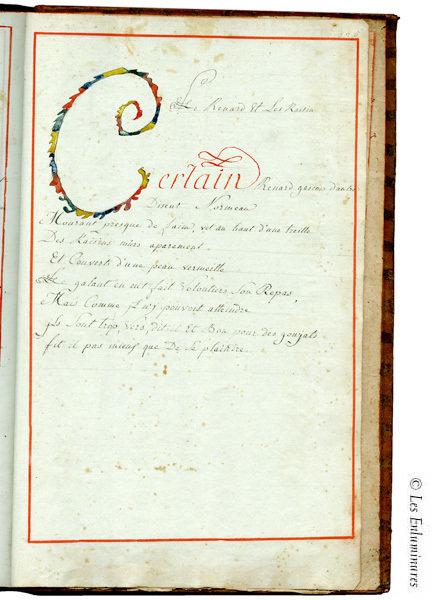 Le Renard Et Les Raisin
Certain Renard gascon d'autre
Disent Normeau
Mourant presque de faim, vit au haut d'une treille
Des Raisins mürs aparement
Et Couverts d'une peau vermeille
Le galant en eut fait volontiers Son Repas,
Mais Comme Il n'y pouvoit atteindre
Ils Sont trop vers, dit il Et Bon pour des goujats
fit il pas mieux que De Se plaindre
© Les Enluminures